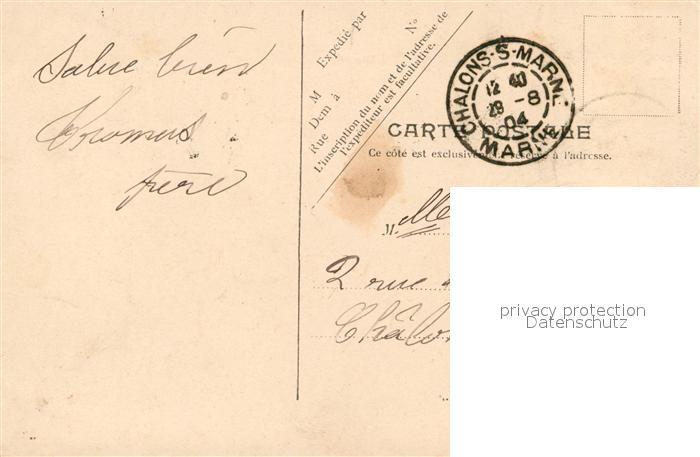 Salue bien
frère
Expédié par
M
Nº
Dem à
Rue
L'inscription du nom et de l'adresse de
l'expéditeur est facultative.
CHALONS-S-MARNE
12 40
28 -8
04
MARNE
CARTE POSTALE
Ce côté est exclusivement réservé à l'adresse.
M. Mle
2 rue
Châlo
privacy protection
Datenschutz